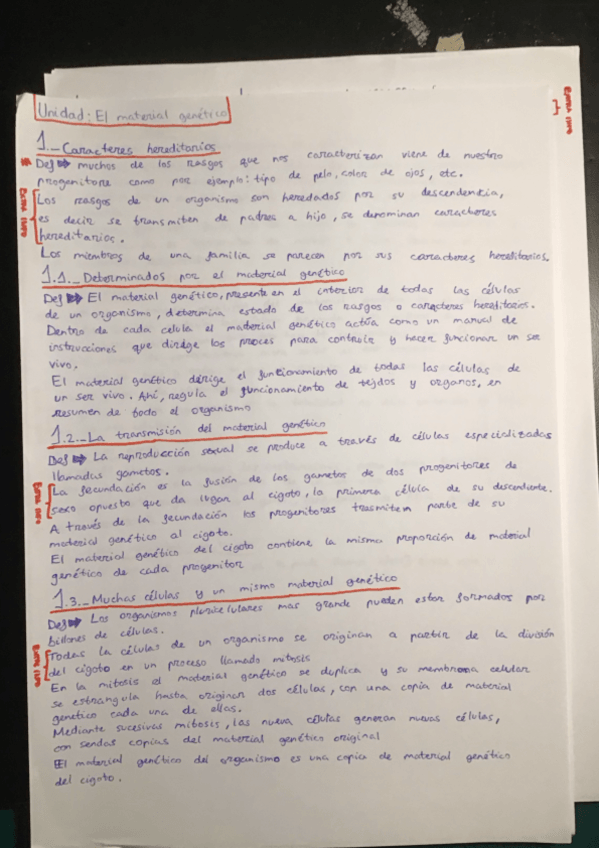 Unidad: El material genético
1._ Caracteres hereditarios
* Def muchos de los rasgos que nos caracterizan viene de nuestro
progenitore como por ejemplo: tipo de pelo, color de ojos, etc.
Los rasgos de un organismo son heredados por su descendencia,
es decir se transmiten de padres a hijo, se denominan caracteres
hereditarios.
Los miembros de una familia se parecen por sus caracteres hereditarios.
1.1._ Determinados por el material genético
Def El material genético, presente en el interior de todas las células
de un organismo, determina estado de los rasgos o caracteres hereditarios.
Dentro de cada celula el material genético actúa como un manual de
instrucciones que dirige los proces para controlar y hacer funcionar un ser
vivo.
El material genético dirige el funcionamiento de todas las células de
un ser vivo. Ahí, regula el funcionamiento de tejdos y organos, en
resumen de todo el organismo
1.2._ La transmisión del material genético
Def La reproducción sexual se produce a través de células especializadas
llamadas gametos.
La fecundación es la fusión de los gametos de dos progenitores de
sexo opuesto que da lugar al cigoto, la primera célula de su descendiente.
A través de la fecundación los progenitores trasmiten parte de su
material genético al cigoto.
El material genético del cigoto contiene la misma proporción de material
genético de cada progenitor
1.3._ Muchas células y un mismo material genético
Def Los organismos pluricelulares mas grande pueden estar formados por
billones de células.
Todas la células de un organismo se originan a partir de la división
del cigoto en un proceso llamado mitosis
En la mitosis el material genético se duplica y su membrana celular
se estrangula hasta originar dos células, con una copia de material
genetico cada una de ellas.
Mediante sucesivas mitosis, las nueva células generan nuevas células,
con sendas copias del material genético original
El material genético del organismo es una copia de material genético
del cigoto.
Extra info
Extra info
Extra info
Extra info